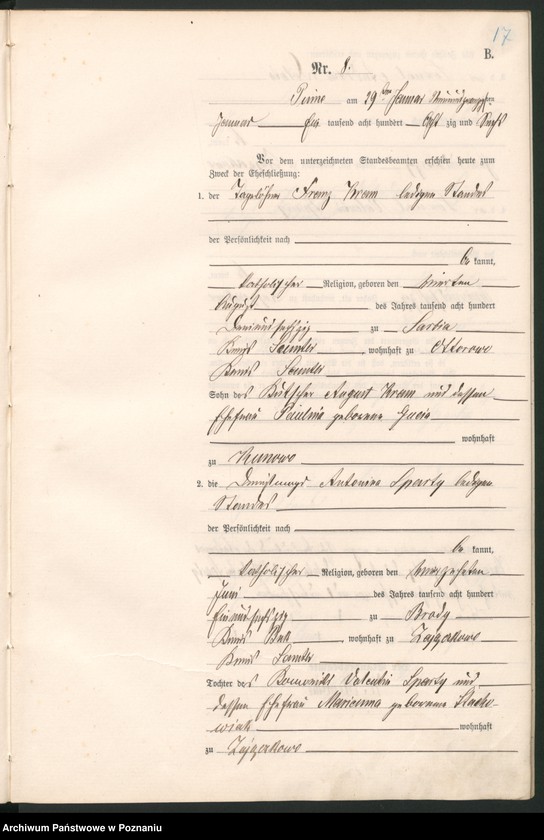 17
B.
Nr. 8.
Pinne am 29ten Januar
Januar ein tausend acht hundert acht zig und sechs
Vor dem unterzeichneten Standesbeamten erschien heute zum
Zweck der Eheschließung:
1. der Tagelöhner Franz Kram ledigen Standes
der Persönlichkeit nach
be kannt,
katholischer Religion, geboren den vierten
August des Jahres tausend acht hundert
dreiundsechzig zu
Kreis Samter, wohnhaft zu Ottorowo
Kreis Samter
Sohn des Kutscher August Kram und dessen
Ehefrau Paulina geborene
wohnhaft
zu Kunowo
2. die Dienstmagd Antonina Sparty ledigen
Standes
der Persönlichkeit nach
be kannt,
katholischer Religion, geboren den
Juni des Jahres tausend acht hundert
einundsechzig zu Brody
Kreis Buk, wohnhaft zu Zajączkowo
Kreis Samter
Tochter des Komornik Valentin Sparty und
dessen Ehefrau Marianna geborene Stacho-
wiak wohnhaft
zu Zajączkowo
Archiwum Państwowe w Poznaniu